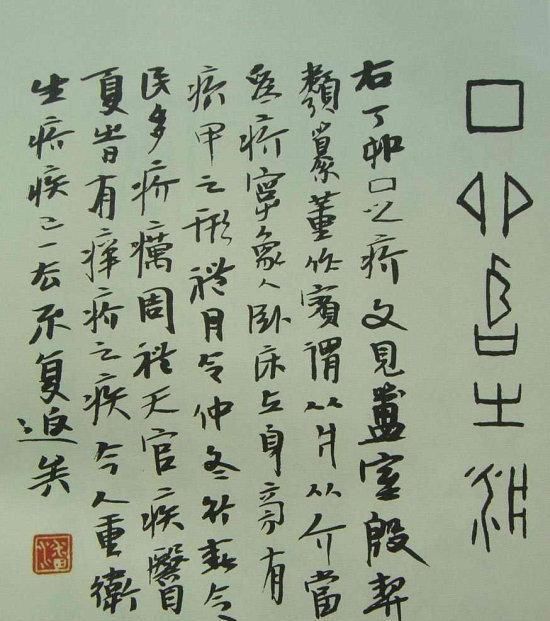 丁卯之疥
右丁卯口之疥文見簠室殷契
類纂董作賓謂从爿从介當
為疥字象人卧床上身旁有
疥甲之形禮月令仲冬行春令
民多疥癘周禮天官疾醫
夏時有痒疥之疾今人重衛
生疥疾已一去不复返矣